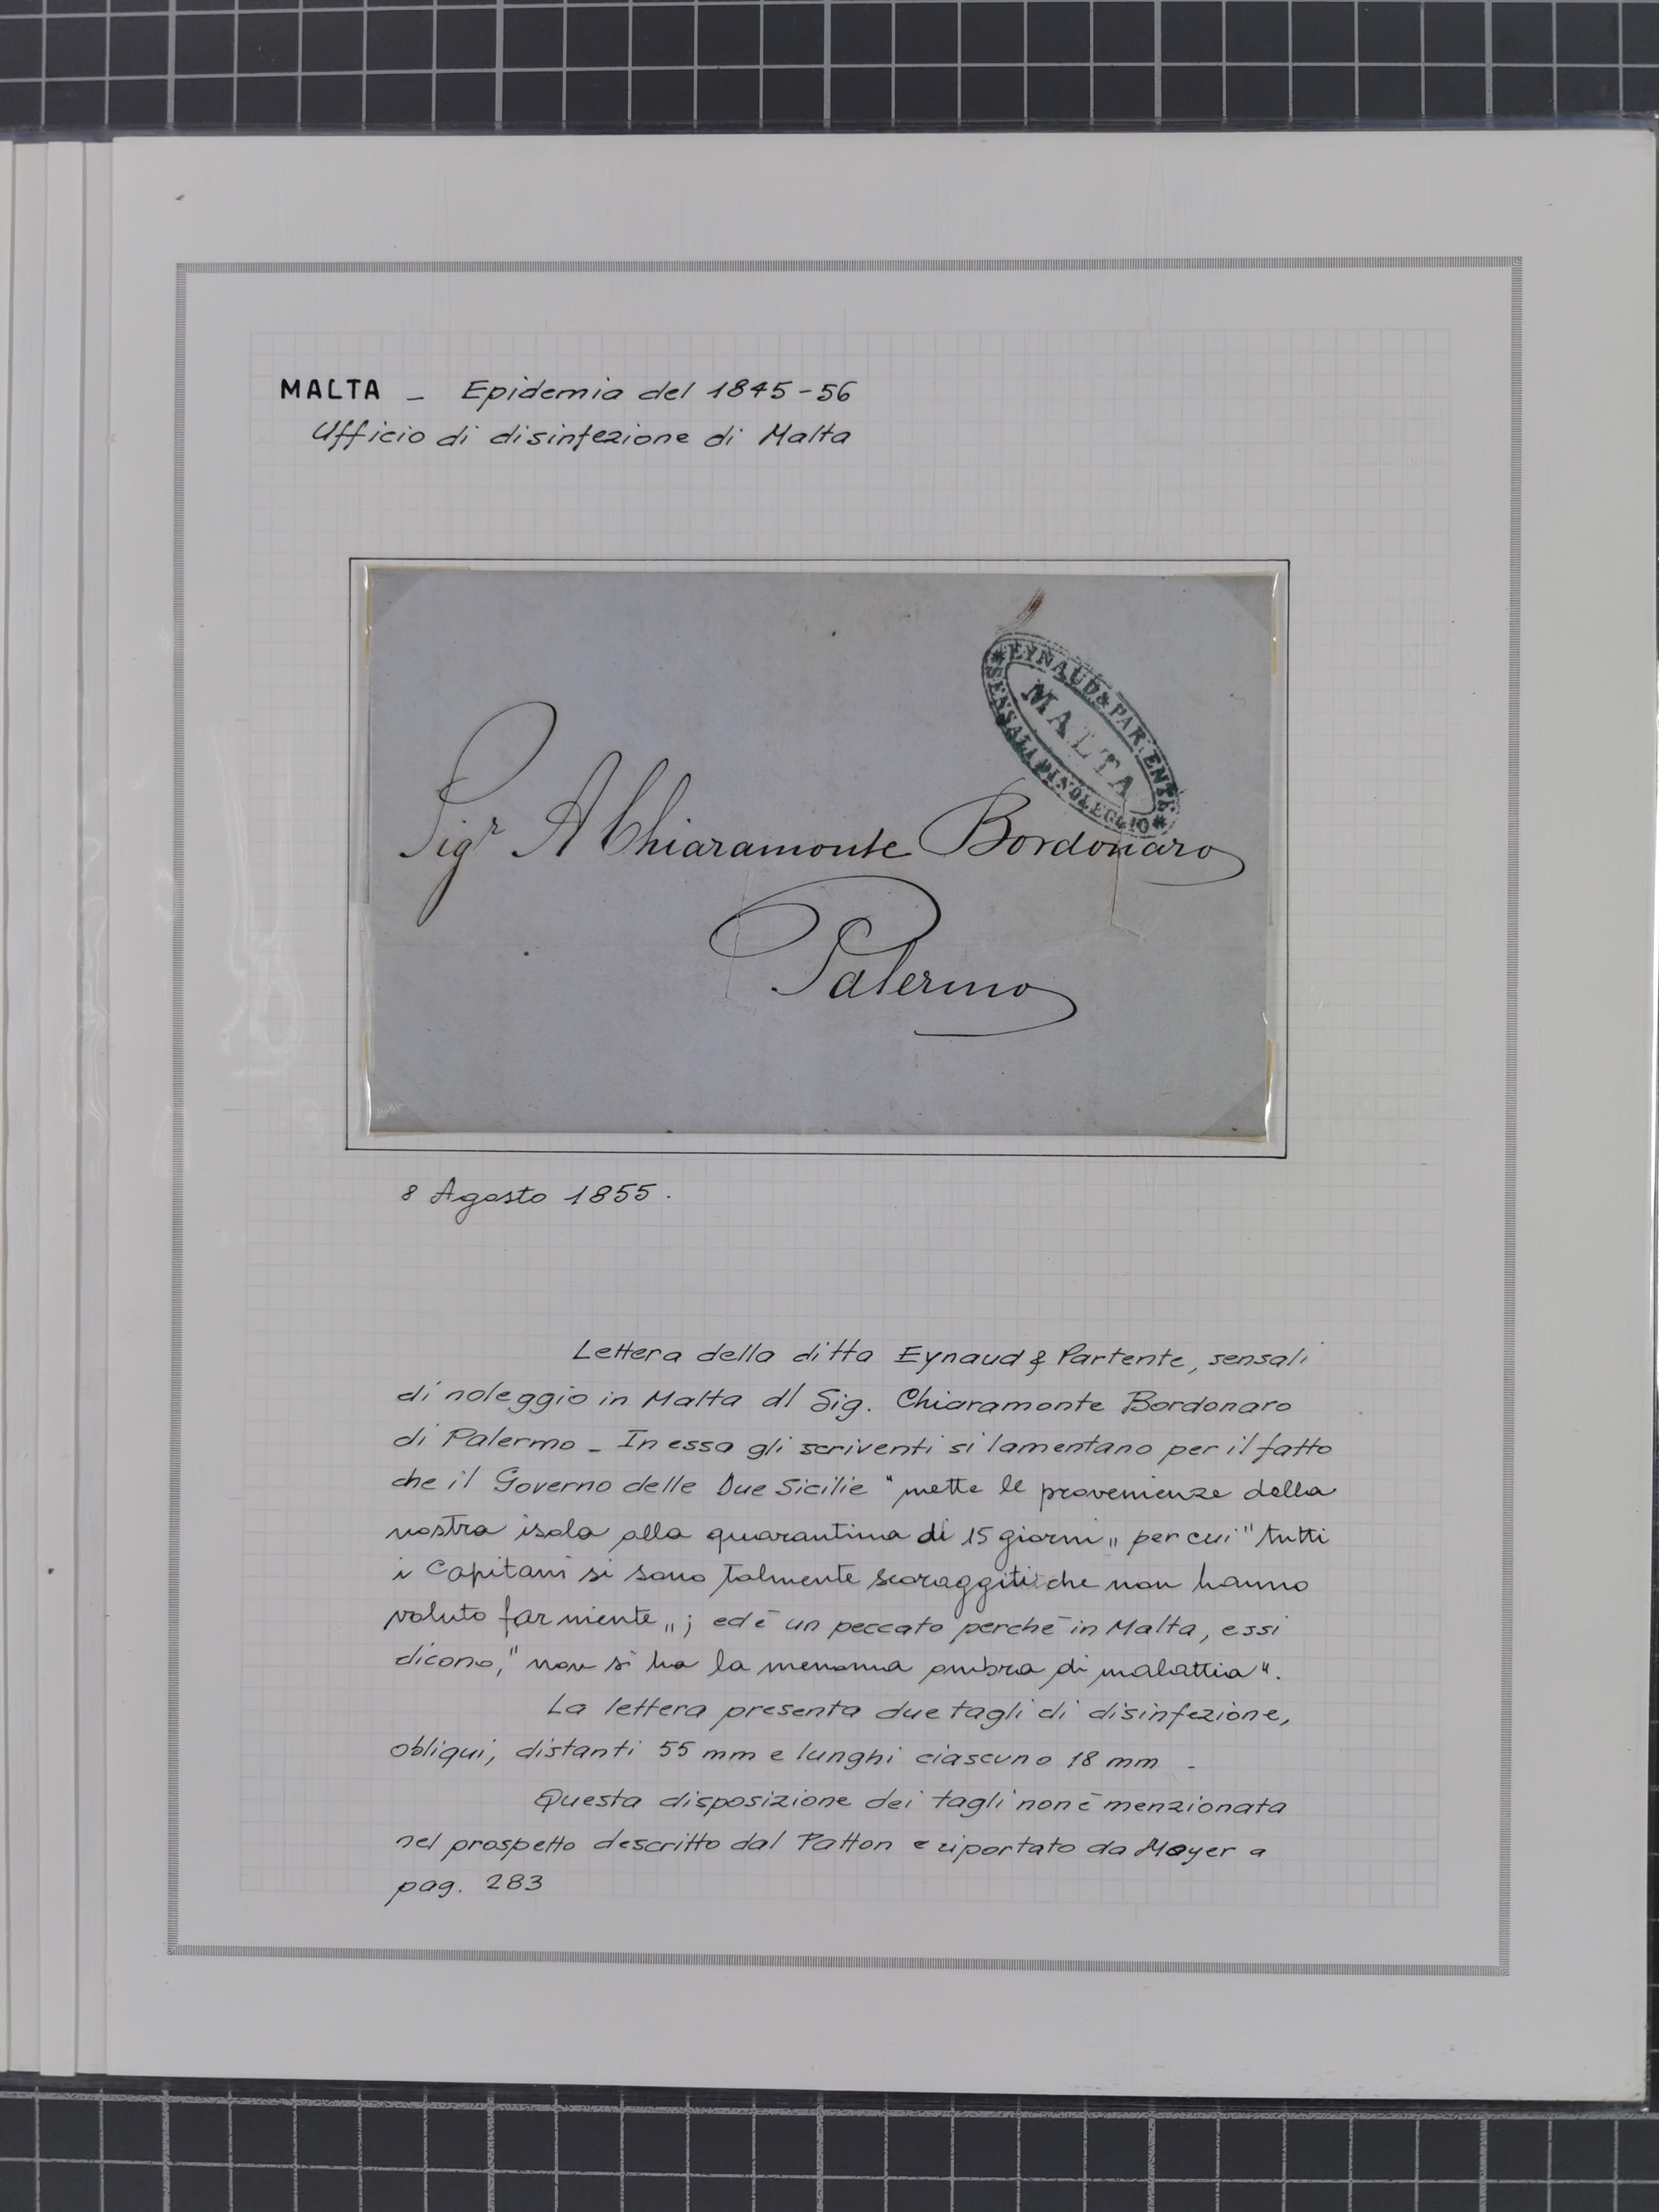 MALTA - Epidemia del 1845-56
Ufficio di disinfezione di Malta
* EYNAUD & PARTENTE *
MALTA
SENSALI DI NOLEGGIO
Sigr A Chiaramonte Bordonaro
Palermo
8 Agosto 1855.
Lettera della ditta Eynaud & Partente, sensali
di noleggio in Malta al Sig. Chiaramonte Bordonaro
di Palermo - In essa gli scriventi si lamentano per il fatto
che il Governo delle Due Sicilie "mette le provenienze della
nostra isola alla quarantina di 15 giorni" per cui "tutti
i Capitani si sono talmente scoraggiti che non hanno
voluto far niente"; ed è un peccato perchè in Malta, essi
dicono, "non si ha la menoma ombra di malattia".
La lettera presenta due tagli di disinfezione,
obliqui, distanti 55 mm e lunghi ciascuno 18 mm -
Questa disposizione dei tagli non è menzionata
nel prospetto descritto dal Patton e riportato da Meyer a
pag. 283